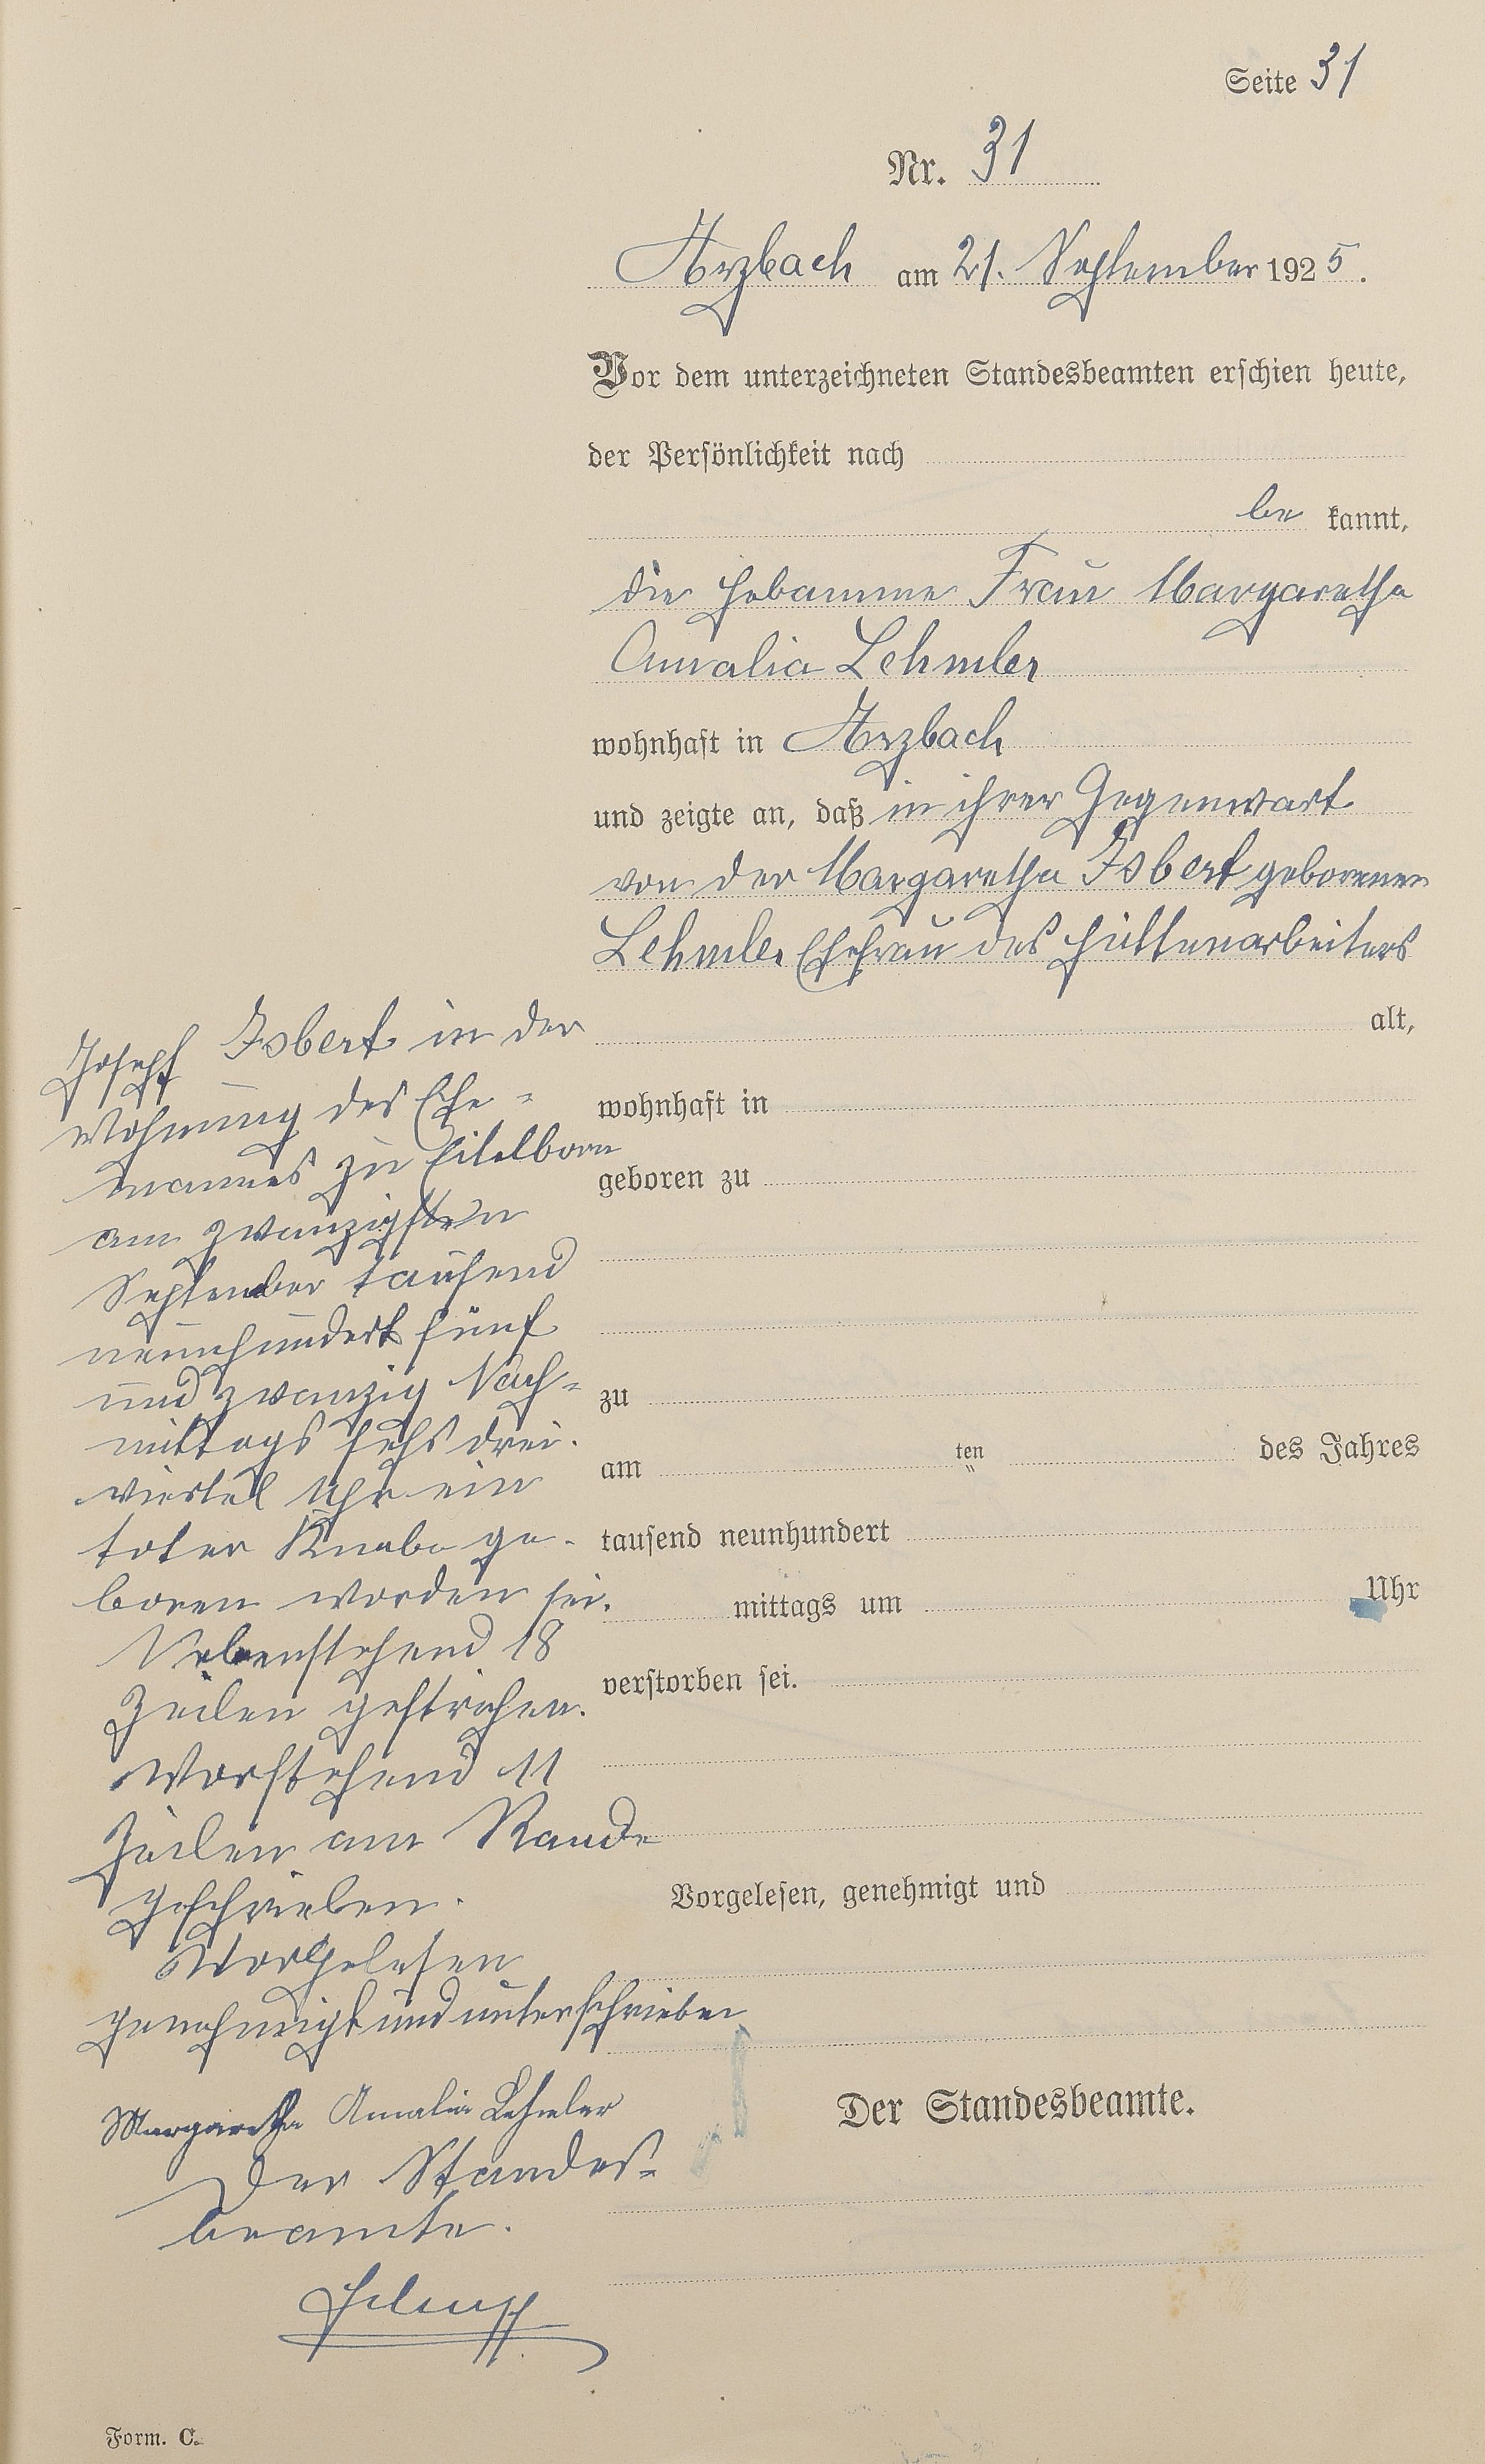 Seite 31
Nr. 31
Arzbach am 21. September 1925.
Vor dem unterzeichneten Standesbeamten erschien heute,
der Persönlichkeit nach
be kannt,
die Hebamme Frau Margaretha
Amalia Lehmler
wohnhaft in Arzbach
und zeigte an, daß in ihrer Gegenwart
von der Margaretha Isbert geborenen
Lehmler Ehefrau des Hüttenarbeiters
alt,
wohnhaft in
geboren zu
zu
am ten des Jahres
tausend neunhundert
mittags um Uhr
verstorben sei.
Vorgelesen, genehmigt und
Der Standesbeamte.
Joseph Isbert in der
Wohnung des Ehe-
mannes zu Eitelborn
am zwanzigsten
September tausend
neunhundert fünf
und zwanzig Nach-
mittags sechs drei-
viertel Uhr ein
toter Knabe ge-
boren worden sei.
Nebenstehend 18
Zeilen gestrichen.
Vorstehend 11
Zeilen am Rande
geschrieben.
Vorgelesen
genehmigt und unterschrieben
Margaretha Amalia Lehmler
Der Standes-
beamte.
Form. C.